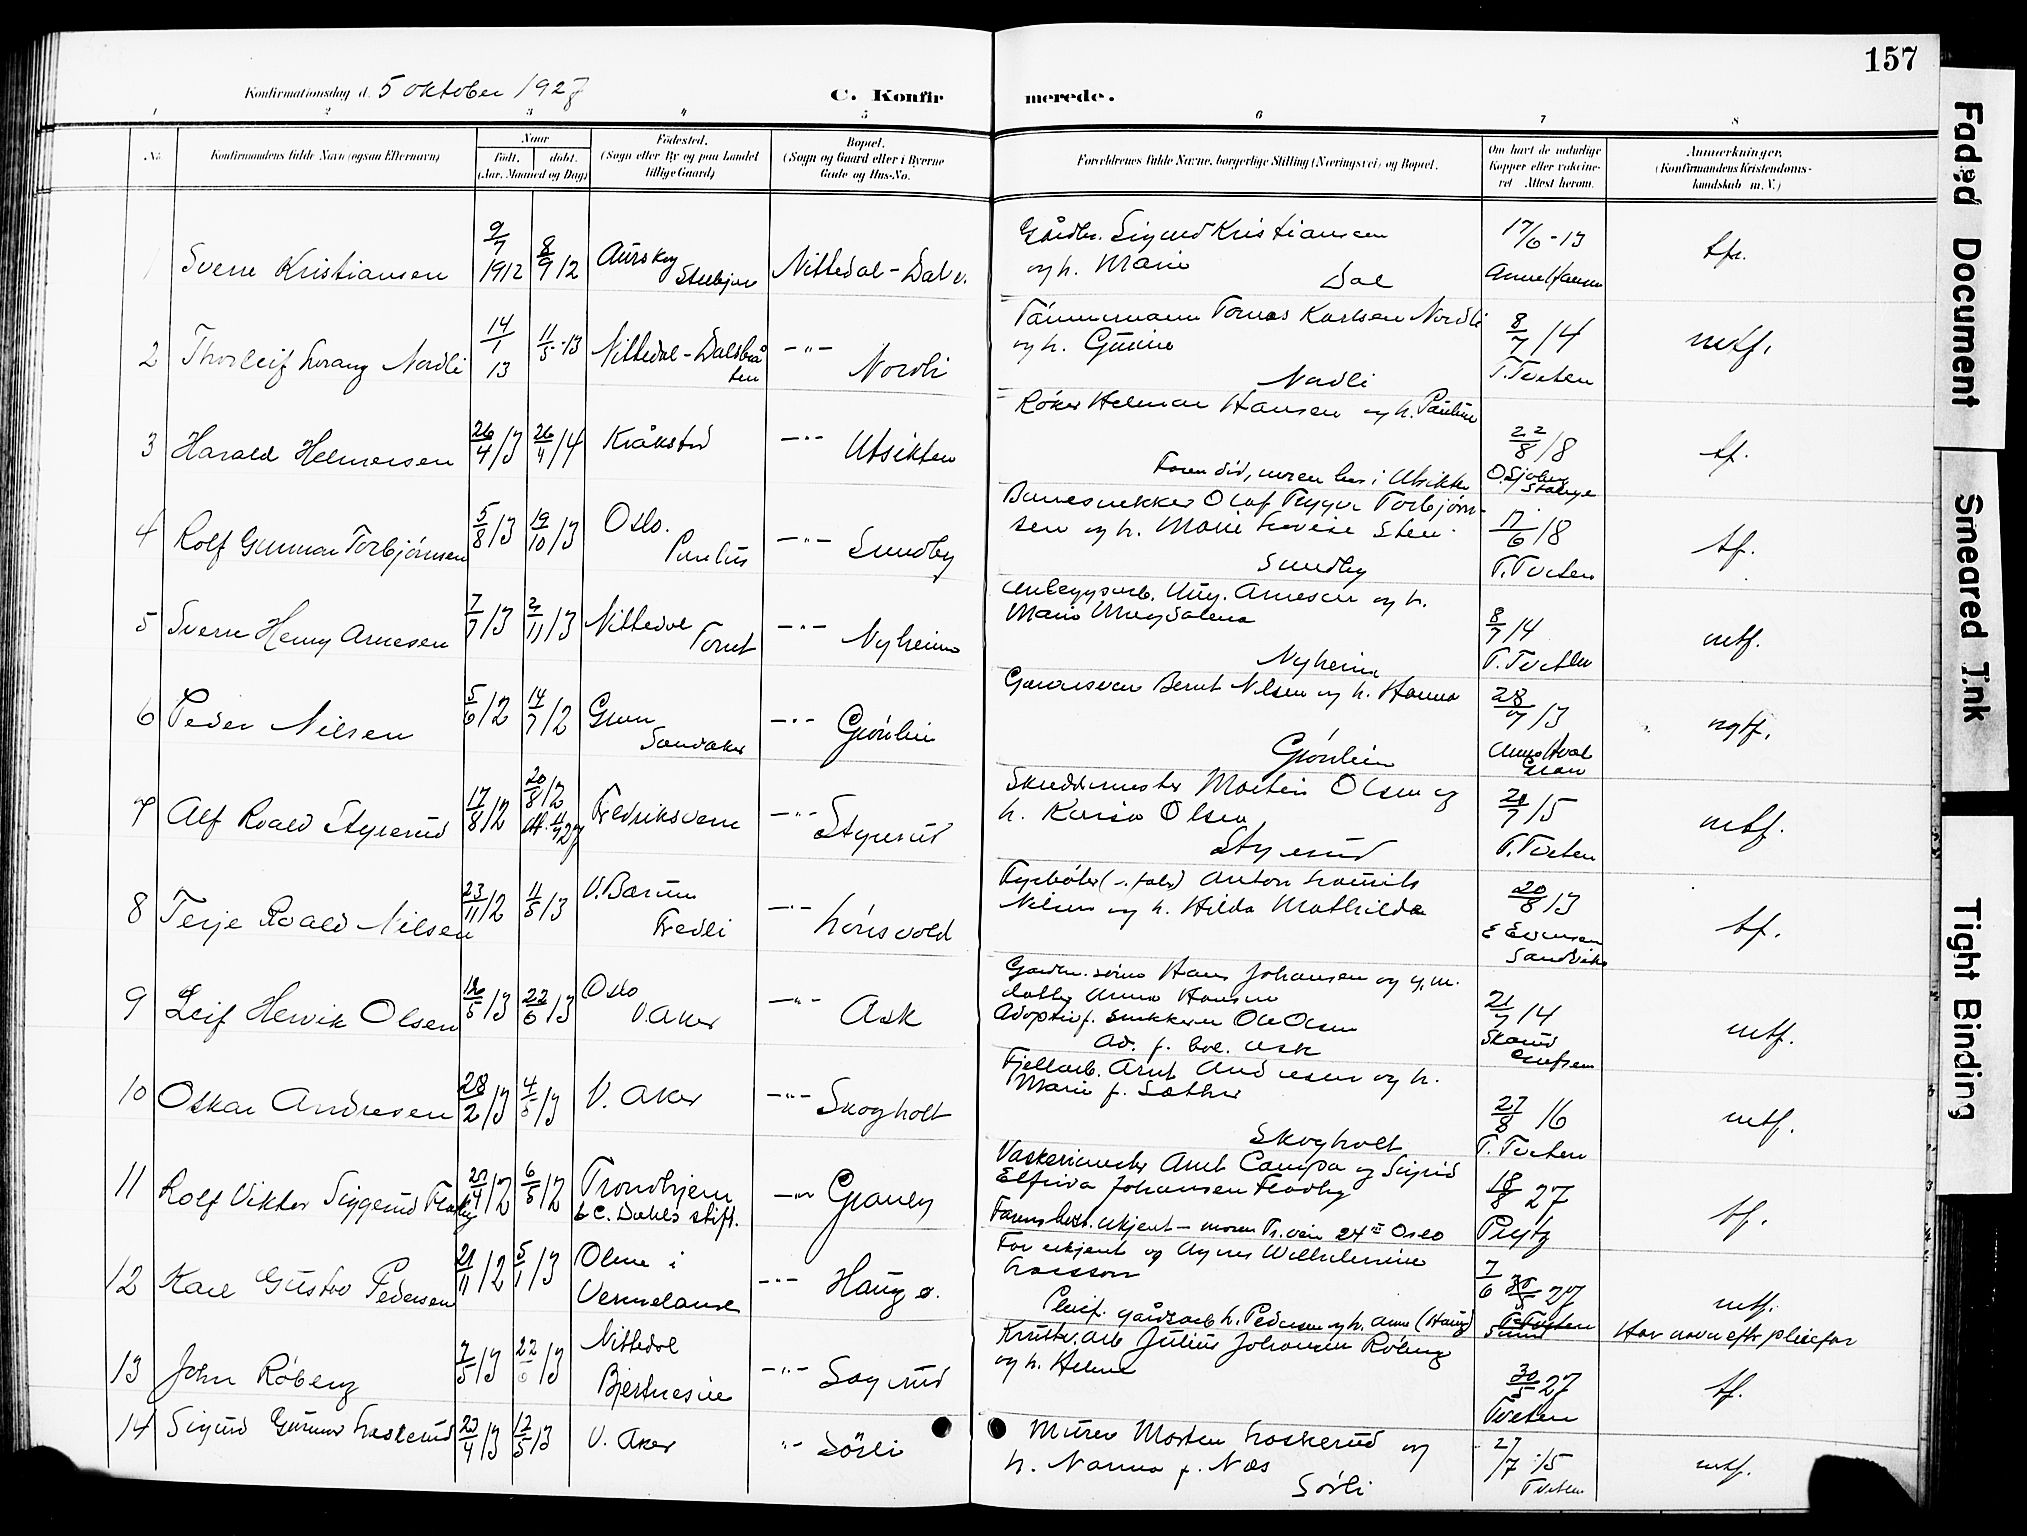 157
Konfirmationsdag d. 5 oktober 1927
C. Konfirmerede.
1 2 3 4 5 6 7 8
No.
Konfirmandens fulde Navn (ogsaa Efternavn)
Naar
født. døbt.
(Aar, Maaned og Dag)
Fødested.
(Sogn eller By og paa Landet
tillige Gaard)
Bopæl.
(Sogn og Gaard eller i Byerne
Gade og Hus-No.
Forældrenes fulde Navne, borgerlige Stilling (Næringsvei) og Bopæl.
Om havt de naturlige
Kopper eller vakcine-
ret Attest herom.
Anmærkninger.
(Konfirmandens Kristendoms-
kundskab m. V.)
1 Sverre Kristiansen 9/7 1912 8/9 12 Aurskog Nittedal - Dal v. Gårdbr. Sigurd Kristiansen
og h. Marie
Dal
17/6-13
tf.
2 Thorleif Lorang Nordli 14/1 13 11/5-13 Nittedal - Dalsbråten —"— Nordli
Tømmermann Tomas Karlsen Nordli
og h. Gunine
Nordli
8/7/14
T. Tveten
mtf.
3 Harald Helmersen 26/4/13 26/4/14 Kråkstad —"— Utsikten
Røker Helmer Hansen og h. Pauline
Faren død, moren bor i Utsikten
22/8/18
Stange
tf.
4 Rolf Gunnar Torbjørnsen 5/8/13 19/10/13 Oslo. Paulus —"— Sundby
Bunnesnekker Olaf Trygve Torbjørn-
sen og h. Marie Lovise Sten-
Sundby
17/6/18
T. Tveten
tf.
5 Sverre Henry Arnesen 7/7/13 2/11/13 Nittedal —"— Nyheim
Anleggsarb. Aug. Arnesen og h.
Marie Magdalena
Nyheim
8/7/14
T. Tveten
mtf.
6 Peder Nilsen 5/6/12 14/7/12 Gran Sandaker —"— Grønlien
Bernt Nilsen og h. Hanna
Grønlien
28/7/13
Gran
mgtf.
7 Alf Roald Styrerud 17/8/12 20/8/12 Fredriksvern —"— Styrerud
Skreddermester Martin Olsen og
h. Karia Olsen
Styrerud
21/7/15
T. Tveten
mtf.
8 Terje Roald Nilsen 23/11/12 11/5/13 V. Bærum Fredli —"— Lønsvold
Fyrbøter Anton Lauritz
Nilsen og h. Hilda Mathilde
20/8/13
E Evensen
Sandvika
tf.
9 Leif Henrik Olsen 12/5/13 22/6/13 Oslo V. Aker —"— Ask
Gårdm. sønn Hans Johansen og g.m.
datter Anna Hansen
Adoptivf. snekkeren Ole Olsen
Ad. f. bol. Ask
21/7/14
mtf.
10 Oskar Andresen 28/2/13 4/5/13 V. Aker —"— Skogholt
Fjellarb. Arnt Andresen og h.
Marie f. Sæther
Skogholt
27/8 16
T. Tveten
mtf.
11 Rolf Viktor Siggerud Fladby 20/4/12 6/5/12 Trondhjem
E. C. Dahls stift. —"—
Vaskerimester Arnt Campa og Sigrid
Elfrida Johansen Fladby
Farens bost. ukjent - moren Tr. vein 24 II Oslo
18/8 27
tf.
12 Karl Gustav Pedersen 21/11/12 5/1/13 Olme i
Vermeland —"— Haug ø.
Far ukjent og Agnes Wilhelmine
Larsson
Pleief. gårdsarb L. Pedersen og h. Anna (Haug)
7/6 27
mtf.
Har navn eftr pleiefar
13 John Røberg 7/5/13 22/6/13 Nittedal
Bjertnesvie —"— Sagerud
Kruttv. arb Julius Johansen Røberg
og h. Helene
30/5 27
Tveten
tf.
14 Sigurd Gunnar Laskerud 23/4/13 12/5/13 V. Aker "- Sørli
Murer Morten Laskerud og
h. Nanna f. Næs
Sørli
27/7 15
Tveten
mtf.
Faded Document
Smeared Ink
Tight Binding